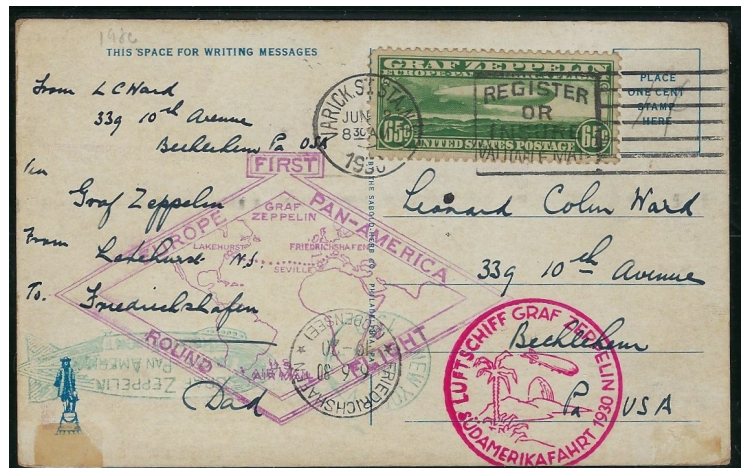 1930
THIS SPACE FOR WRITING MESSAGES
From L C Ward
339 10th Avenue
Bethlehem Pa USA
Via
Graf Zeppelin
From Lakehurst N.J.
To. Friedrichshafen
Dad
GRAF ZEPPELIN
65c 65c
UNITED STATES POSTAGE
VARICK ST. STA.
JUN
8 30 A
1930
REGISTER
OR
INSURE
VALUABLE MAIL
PLACE
ONE CENT
STAMP
HERE
Leonard Colin Ward
339 10th Avenue
Bethlehem
Pa USA
FIRST
EUROPE PAN-AMERICA
ROUND FLIGHT
GRAF
ZEPPELIN
LAKEHURST
FRIEDRICHSHAFEN
SEVILLE
U.S.
AIR MAIL
FRIEDRICHSHAFEN
(BODENSEE)
6. 6. 30
19-20
NEW YO
GRAF ZEPPELIN
PAN AMERI
LUFTSCHIFF GRAF ZEPPELIN
SÜDAMERIKAFAHRT 1930